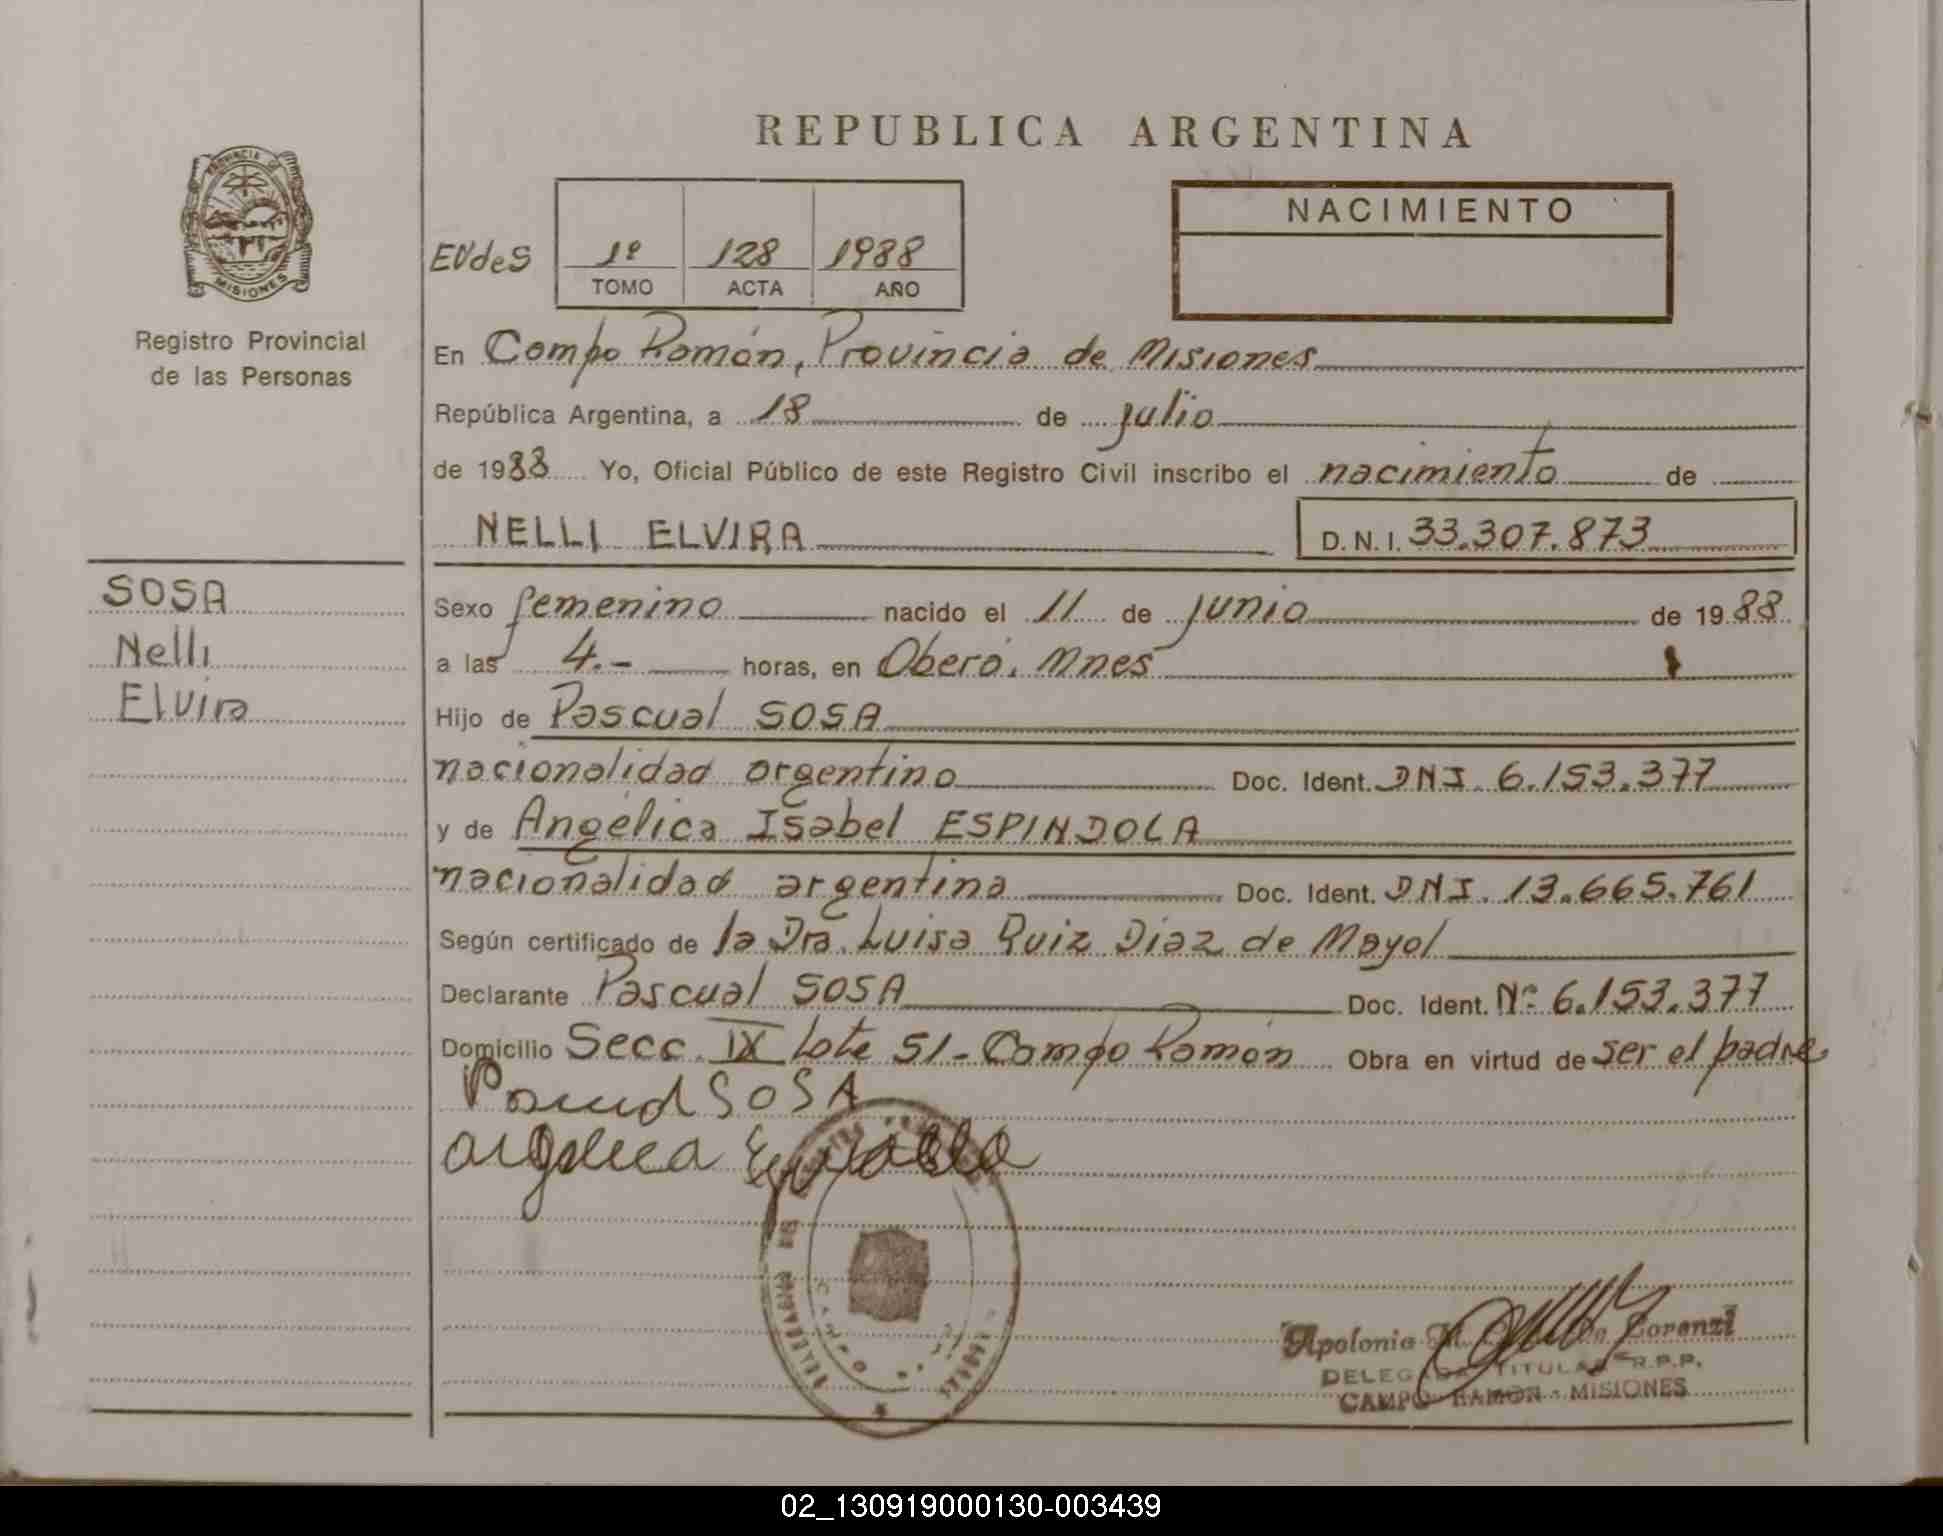 REPUBLICA ARGENTINA
PROVINCIA DE
MISIONES
Registro Provincial
de las Personas
EUdeS
1º 128 1988
TOMO ACTA AÑO
NACIMIENTO
En Campo Ramón, Provincia de Misiones
República Argentina, a 18 de julio
de 1988 Yo, Oficial Público de este Registro Civil inscribo el nacimiento de
NELLI ELVIRA D.N.I. 33.307.873
SOSA
Nelli
Elvira
Sexo femenino nacido el 11 de junio de 1988
a las 4.- horas, en Oberá. Mnes
Hijo de Pascual SOSA
nacionalidad argentino Doc. Ident. DNI. 6.153.377
y de Angélica Isabel ESPINDOLA
nacionalidad argentina Doc. Ident. DNI. 13.665.761
Según certificado de la Dra. Luisa Ruiz Diaz de Mayol
Declarante Pascual SOSA Doc. Ident. Nº 6.153.377
Domicilio Secc. IX Lote 51 - Campo Ramón Obra en virtud de ser el padre
Pascual SOSA
Angelica
CAMPO
Apolonia M. Lorenzi
DELEGADA TITULAR R.P.P.
CAMPO RAMON - MISIONES
02_130919000130-003439